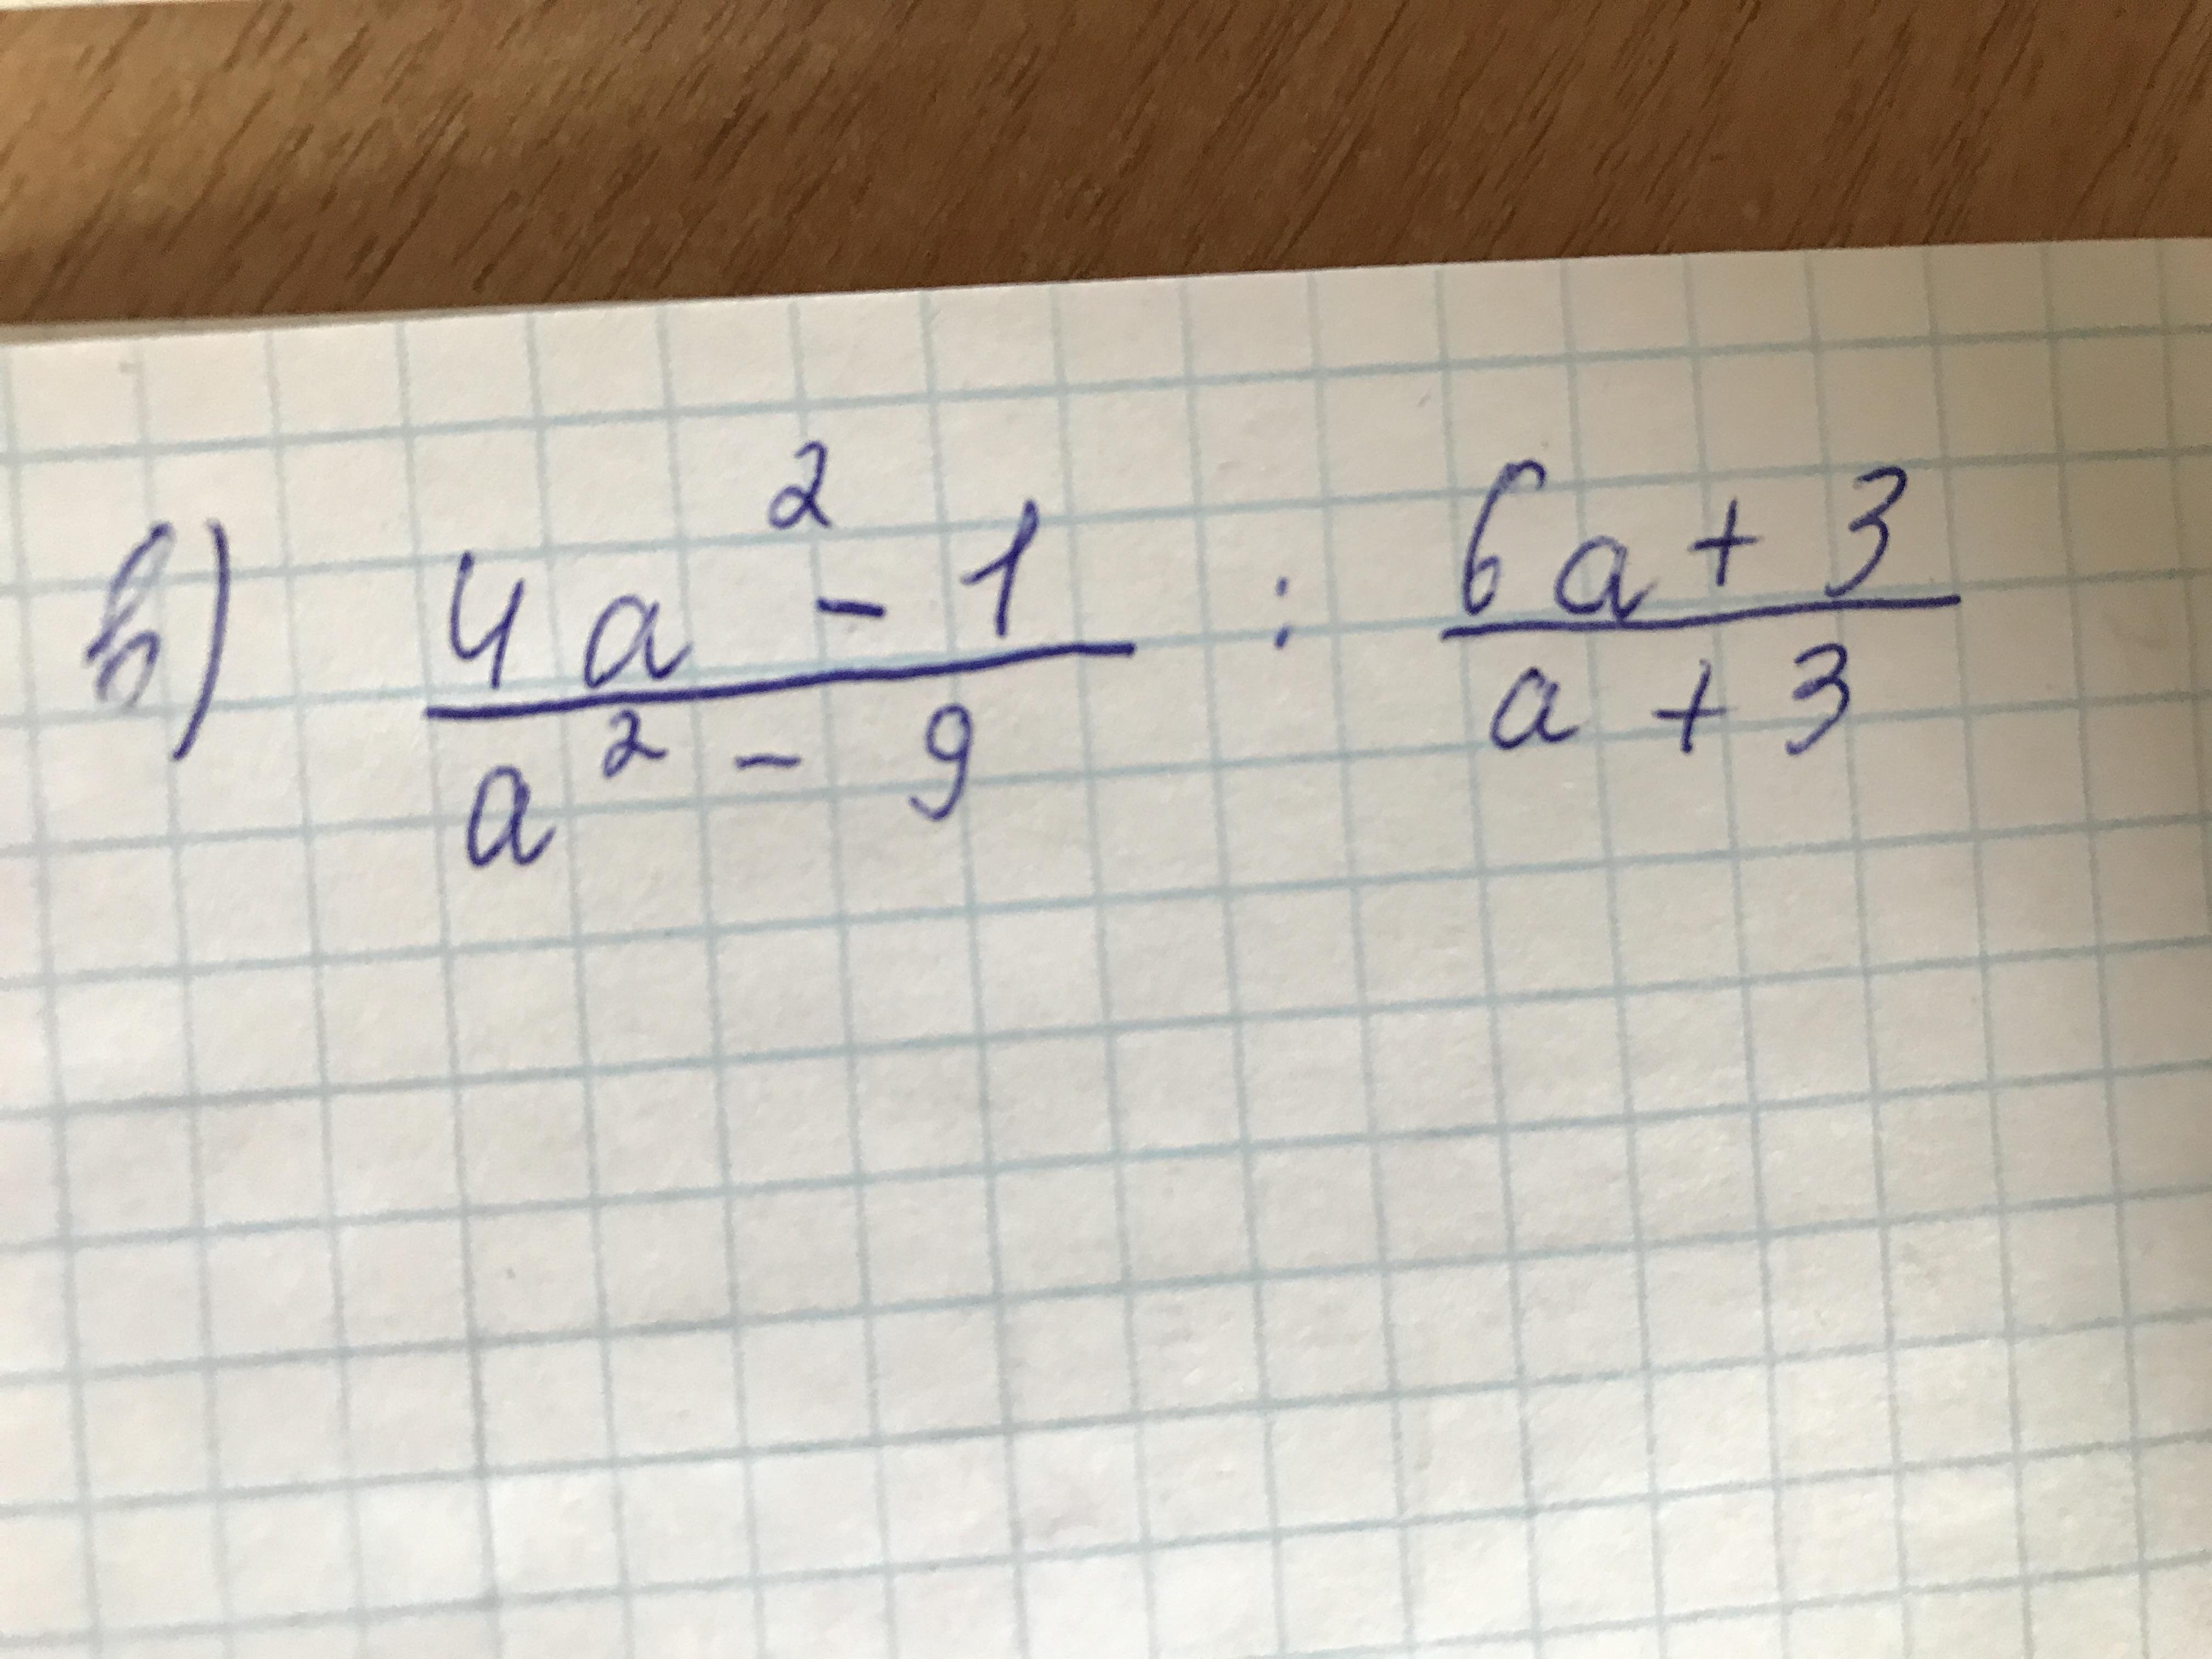 в) (4a² - 1)/(a² - 9) : (6a + 3)/(a + 3)